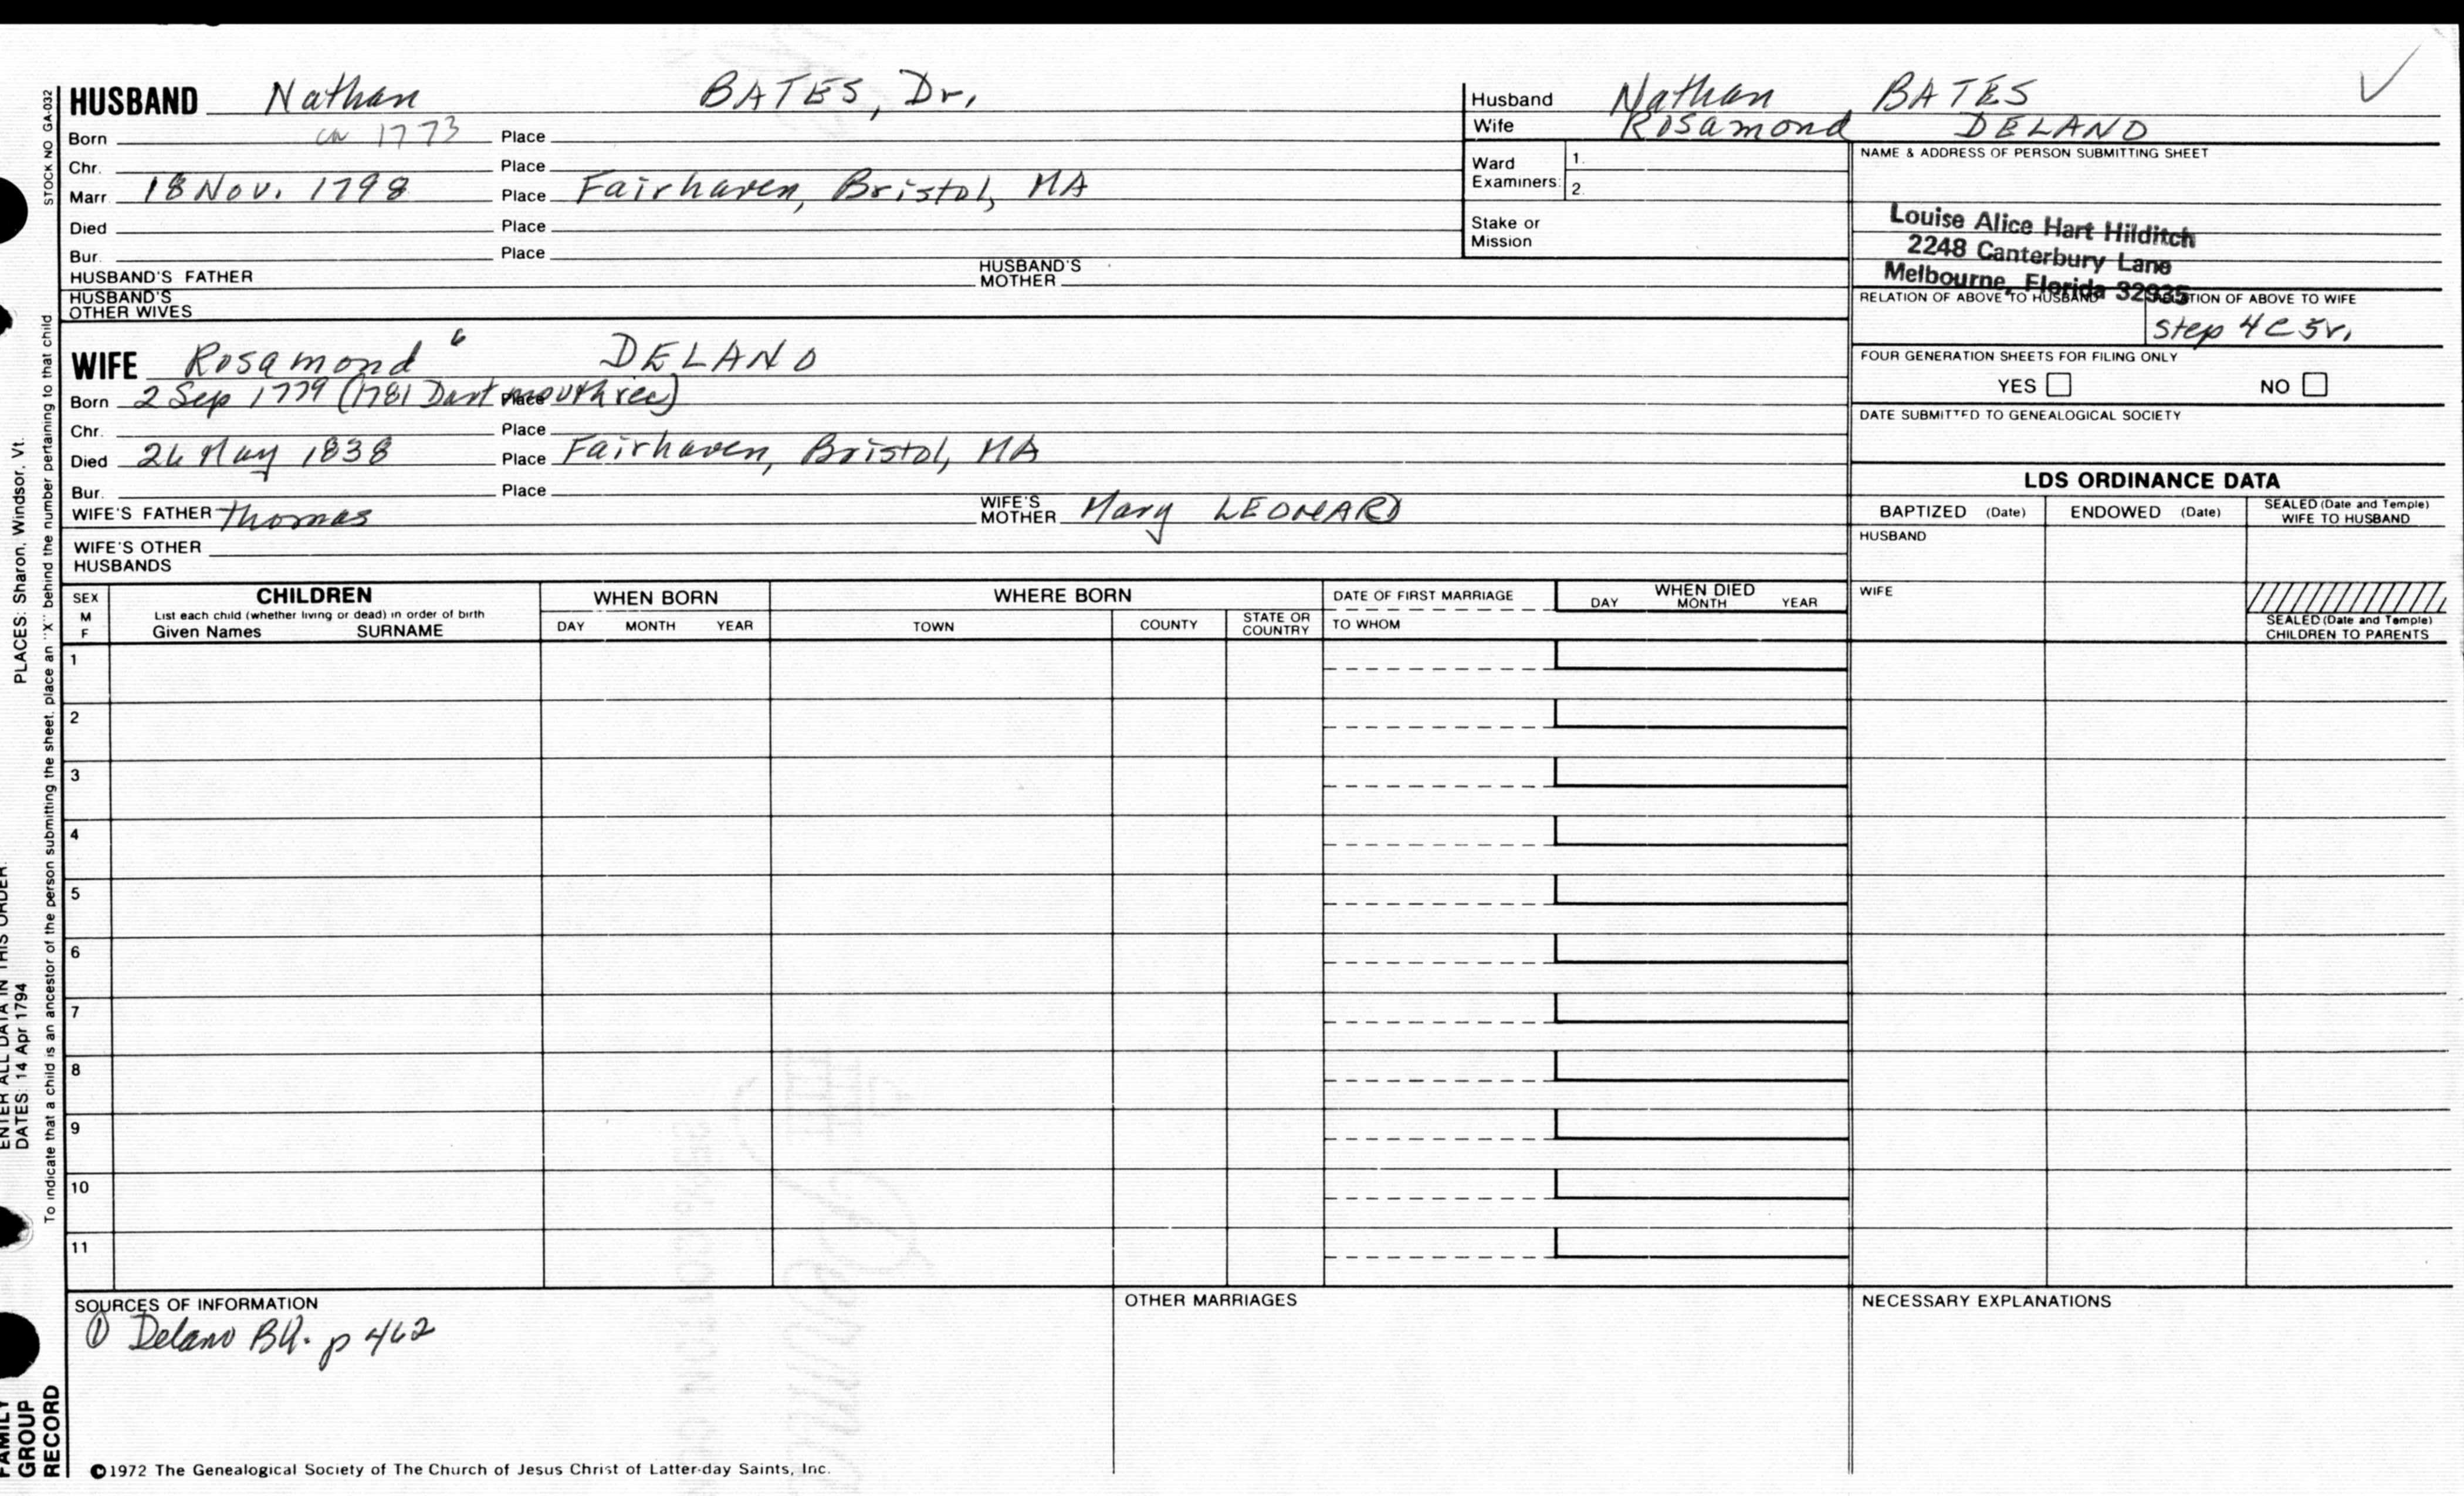 HUSBAND Nathan BATES, Dr.
Born ca 1773 Place
Chr. Place
Marr. 18 Nov. 1798 Place Fairhaven, Bristol, MA
Died Place
Bur. Place
HUSBAND'S FATHER HUSBAND'S MOTHER
HUSBAND'S OTHER WIVES
Husband Nathan BATES
Wife Rosamond DELANO
Ward Examiners: 1.
2.
Stake or Mission
NAME & ADDRESS OF PERSON SUBMITTING SHEET
Louise Alice Hart Hilditch
2248 Canterbury Lane
Melbourne, Florida 32935
RELATION OF ABOVE TO HUSBAND RELATION OF ABOVE TO WIFE
Step 4C5r.
FOUR GENERATION SHEETS FOR FILING ONLY
YES NO
DATE SUBMITTED TO GENEALOGICAL SOCIETY
WIFE Rosamond 6 DELANO
Born 2 Sep 1779 (1781 Dartmouth rec) Place
Chr. Place
Died 26 May 1838 Place Fairhaven, Bristol, MA
Bur. Place
WIFE'S FATHER Thomas WIFE'S MOTHER Mary LEONARD
WIFE'S OTHER HUSBANDS
LDS ORDINANCE DATA
BAPTIZED (Date) ENDOWED (Date) SEALED (Date and Temple) WIFE TO HUSBAND
HUSBAND
WIFE
SEALED (Date and Temple) CHILDREN TO PARENTS
SEX M F
CHILDREN
List each child (whether living or dead) in order of birth
Given Names SURNAME
WHEN BORN
DAY MONTH YEAR
WHERE BORN
TOWN COUNTY STATE OR COUNTRY
DATE OF FIRST MARRIAGE
TO WHOM
WHEN DIED
DAY MONTH YEAR
1
2
3
4
5
6
7
8
9
10
11
SOURCES OF INFORMATION
① Delano BK. p 462
OTHER MARRIAGES
NECESSARY EXPLANATIONS
©1972 The Genealogical Society of The Church of Jesus Christ of Latter-day Saints, Inc.
STOCK NO GA-032
To indicate that a child is an ancestor of the person submitting the sheet, place an "X" behind the number pertaining to that child
PLACES: Sharon, Windsor, Vt.
ENTER ALL DATA IN THIS ORDER:
DATES: 14 Apr 1794
FAMILY GROUP RECORD